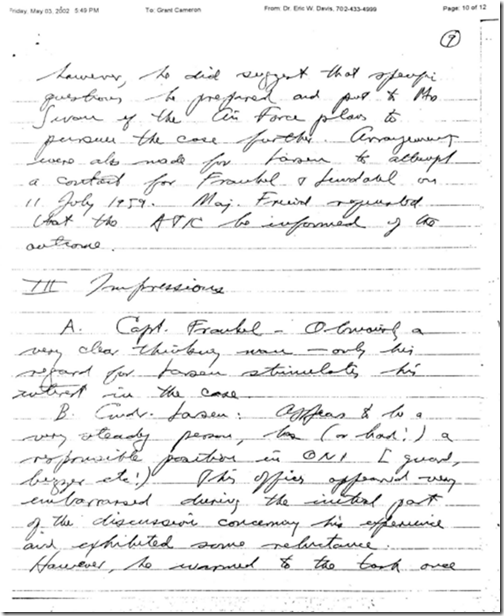 Friday, May 03, 2002 5:49 PM To: Grant Cameron From: Dr. Eric W. Davis, 702-433-4999 Page: 10 of 12
9
however, he did suggest that specific
questions be prepared and put to Mrs
Swan if the Air Force plans to
pursues the case further. Arrangements
were also made for Larsen to attempt
a contact for Frankel & Lundahl on
11 July 1959. Maj. Friend requested
that the ATIC be informed of the
outcome.
III Impressions
A. Capt. Frankel - Obviously a
very clear thinking man — only his
regard for Larsen stimulates his
interest in the case
B. Cmdr. Larsen: Appears to be a
very steady person, has (or had!) a
responsible position in ONI [guard,
buzzer etc!) This officer appeared very
embarrassed during the initial part
of the discussion concerning his experience
and exhibited some reluctance.
However, he warmed to the task once